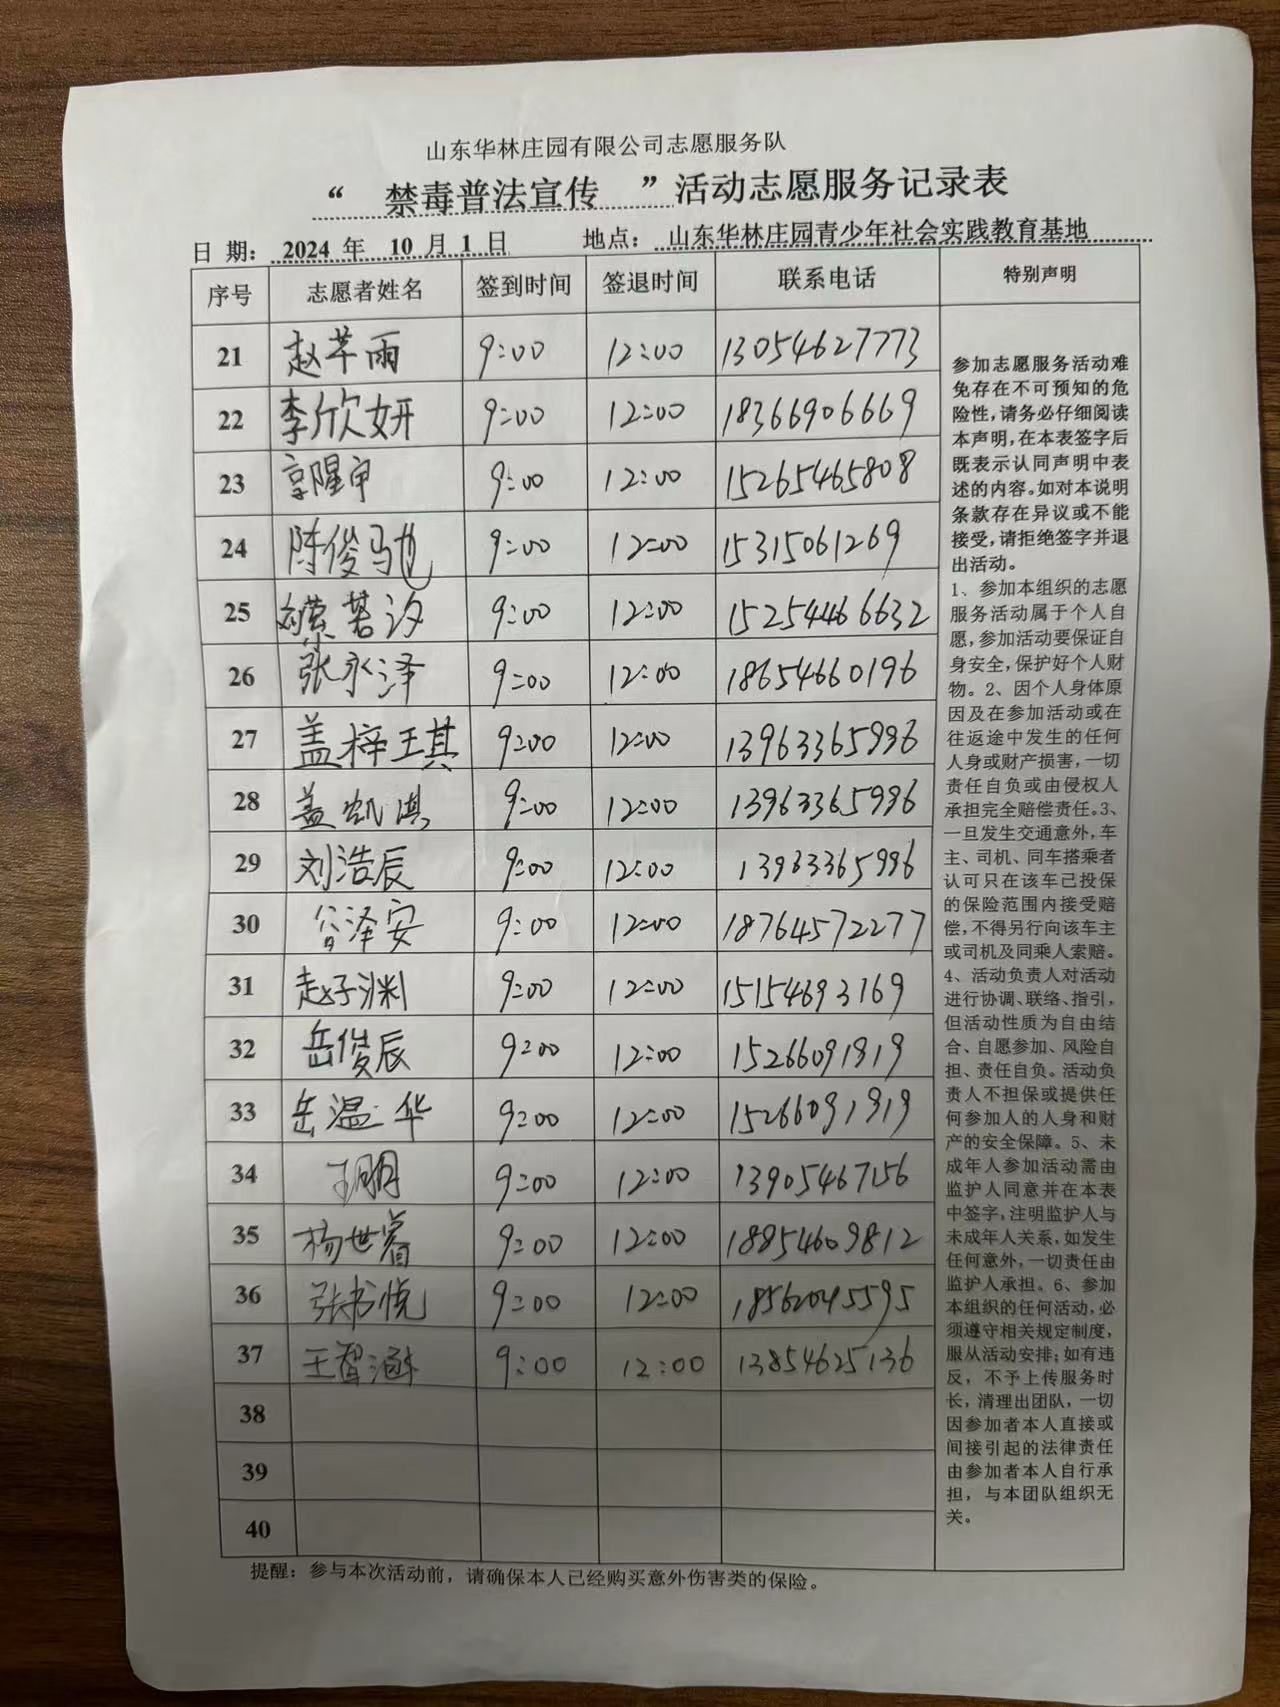 山东华林庄园有限公司志愿服务队
“ 禁毒普法宣传 ”活动志愿服务记录表
日 期: 2024 年 10 月 1 日 地点: 山东华林庄园青少年社会实践教育基地
序号 志愿者姓名 签到时间 签退时间 联系电话 特别声明
21 赵芊雨 9:00 12:00 13054627773
22 李欣妍 9:00 12:00 18366906669
23 9:00 12:00 15265465808
24 陈俊驰 9:00 12:00 15315061269
25 9:00 12:00 15254466632
26 张永泽 9:00 12:00 18654660196
27 盖梓琪 9:00 12:00 13963365996
28 盖凯淇 9:00 12:00 13963365996
29 刘浩辰 9:00 12:00 13963365996
30 谷泽安 9:00 12:00 18764572277
31 赵子渊 9:00 12:00 15154693169
32 岳俊辰 9:00 12:00 15266091919
33 岳温华 9:00 12:00 15266091919
34 王鹏 9:00 12:00 13905467156
35 杨世睿 9:00 12:00 18854609812
36 张书悦 9:00 12:00 18562045595
37 王智涵 9:00 12:00 13854625136
38
39
40
参加志愿服务活动难
免存在不可预知的危
险性,请务必仔细阅读
本声明,在本表签字后
既表示认同声明中表
述的内容。如对本说明
条款存在异议或不能
接受,请拒绝签字并退
出活动。
1、参加本组织的志愿
服务活动属于个人自
愿,参加活动要保证自
身安全,保护好个人财
物。2、因个人身体原
因及在参加活动或在
往返途中发生的任何
人身或财产损害,一切
责任自负或由侵权人
承担完全赔偿责任。3、
一旦发生交通意外,车
主、司机、同车搭乘者
认可只在该车已投保
的保险范围内接受赔
偿,不得另行向该车主
或司机及同乘人索赔。
4、活动负责人对活动
进行协调、联络、指引,
但活动性质为自由结
合、自愿参加、风险自
担、责任自负。活动负
责人不担保或提供任
何参加人的人身和财
产的安全保障。5、未
成年人参加活动需由
监护人同意并在本表
中签字,注明监护人与
未成年人关系,如发生
任何意外,一切责任由
监护人承担。6、参加
本组织的任何活动,必
须遵守相关规定制度,
服从活动安排;如有违
反,不予上传服务时
长,清理出团队,一切
因参加者本人直接或
间接引起的法律责任
由参加者本人自行承
担,与本团队组织无
关。
提醒:参与本次活动前,请确保本人已经购买意外伤害类的保险。